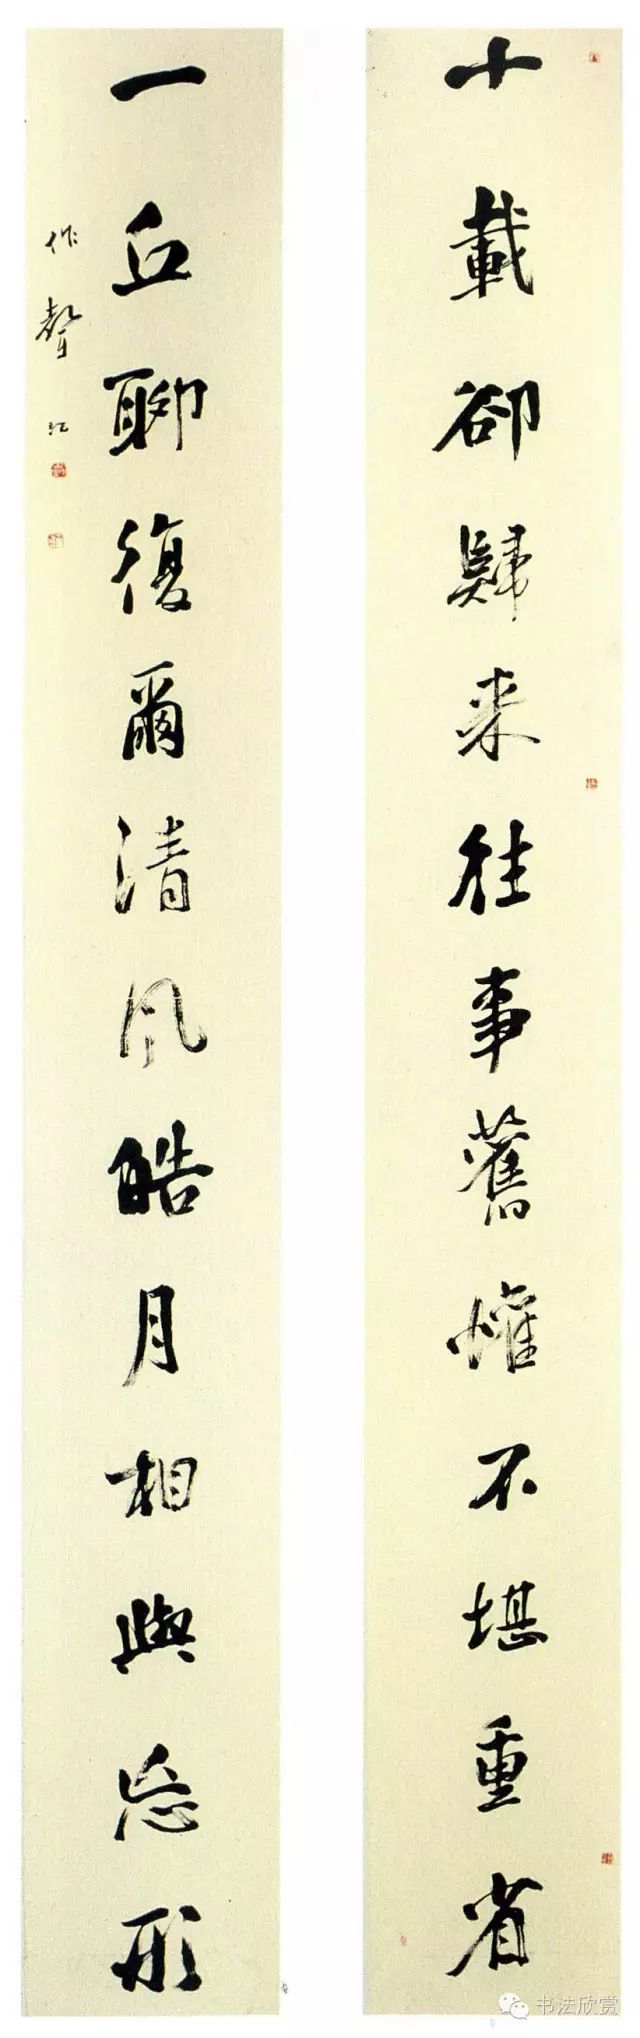 十載卻歸来往事舊懽不堪重省
一丘聊復爾清風皓月相與忘形
作聲
书法欣赏